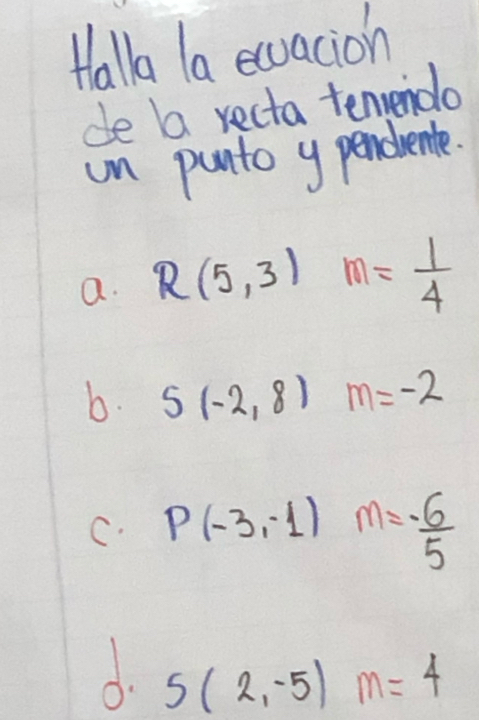 Halla la ecuación
de la recta teniendo
un punto y pendiente.
a. R(5,3) m= 1/4
b. S(-2,8) m=-2
c. P(-3,-1) m=-6/5
d. S(2,-5) m= 4